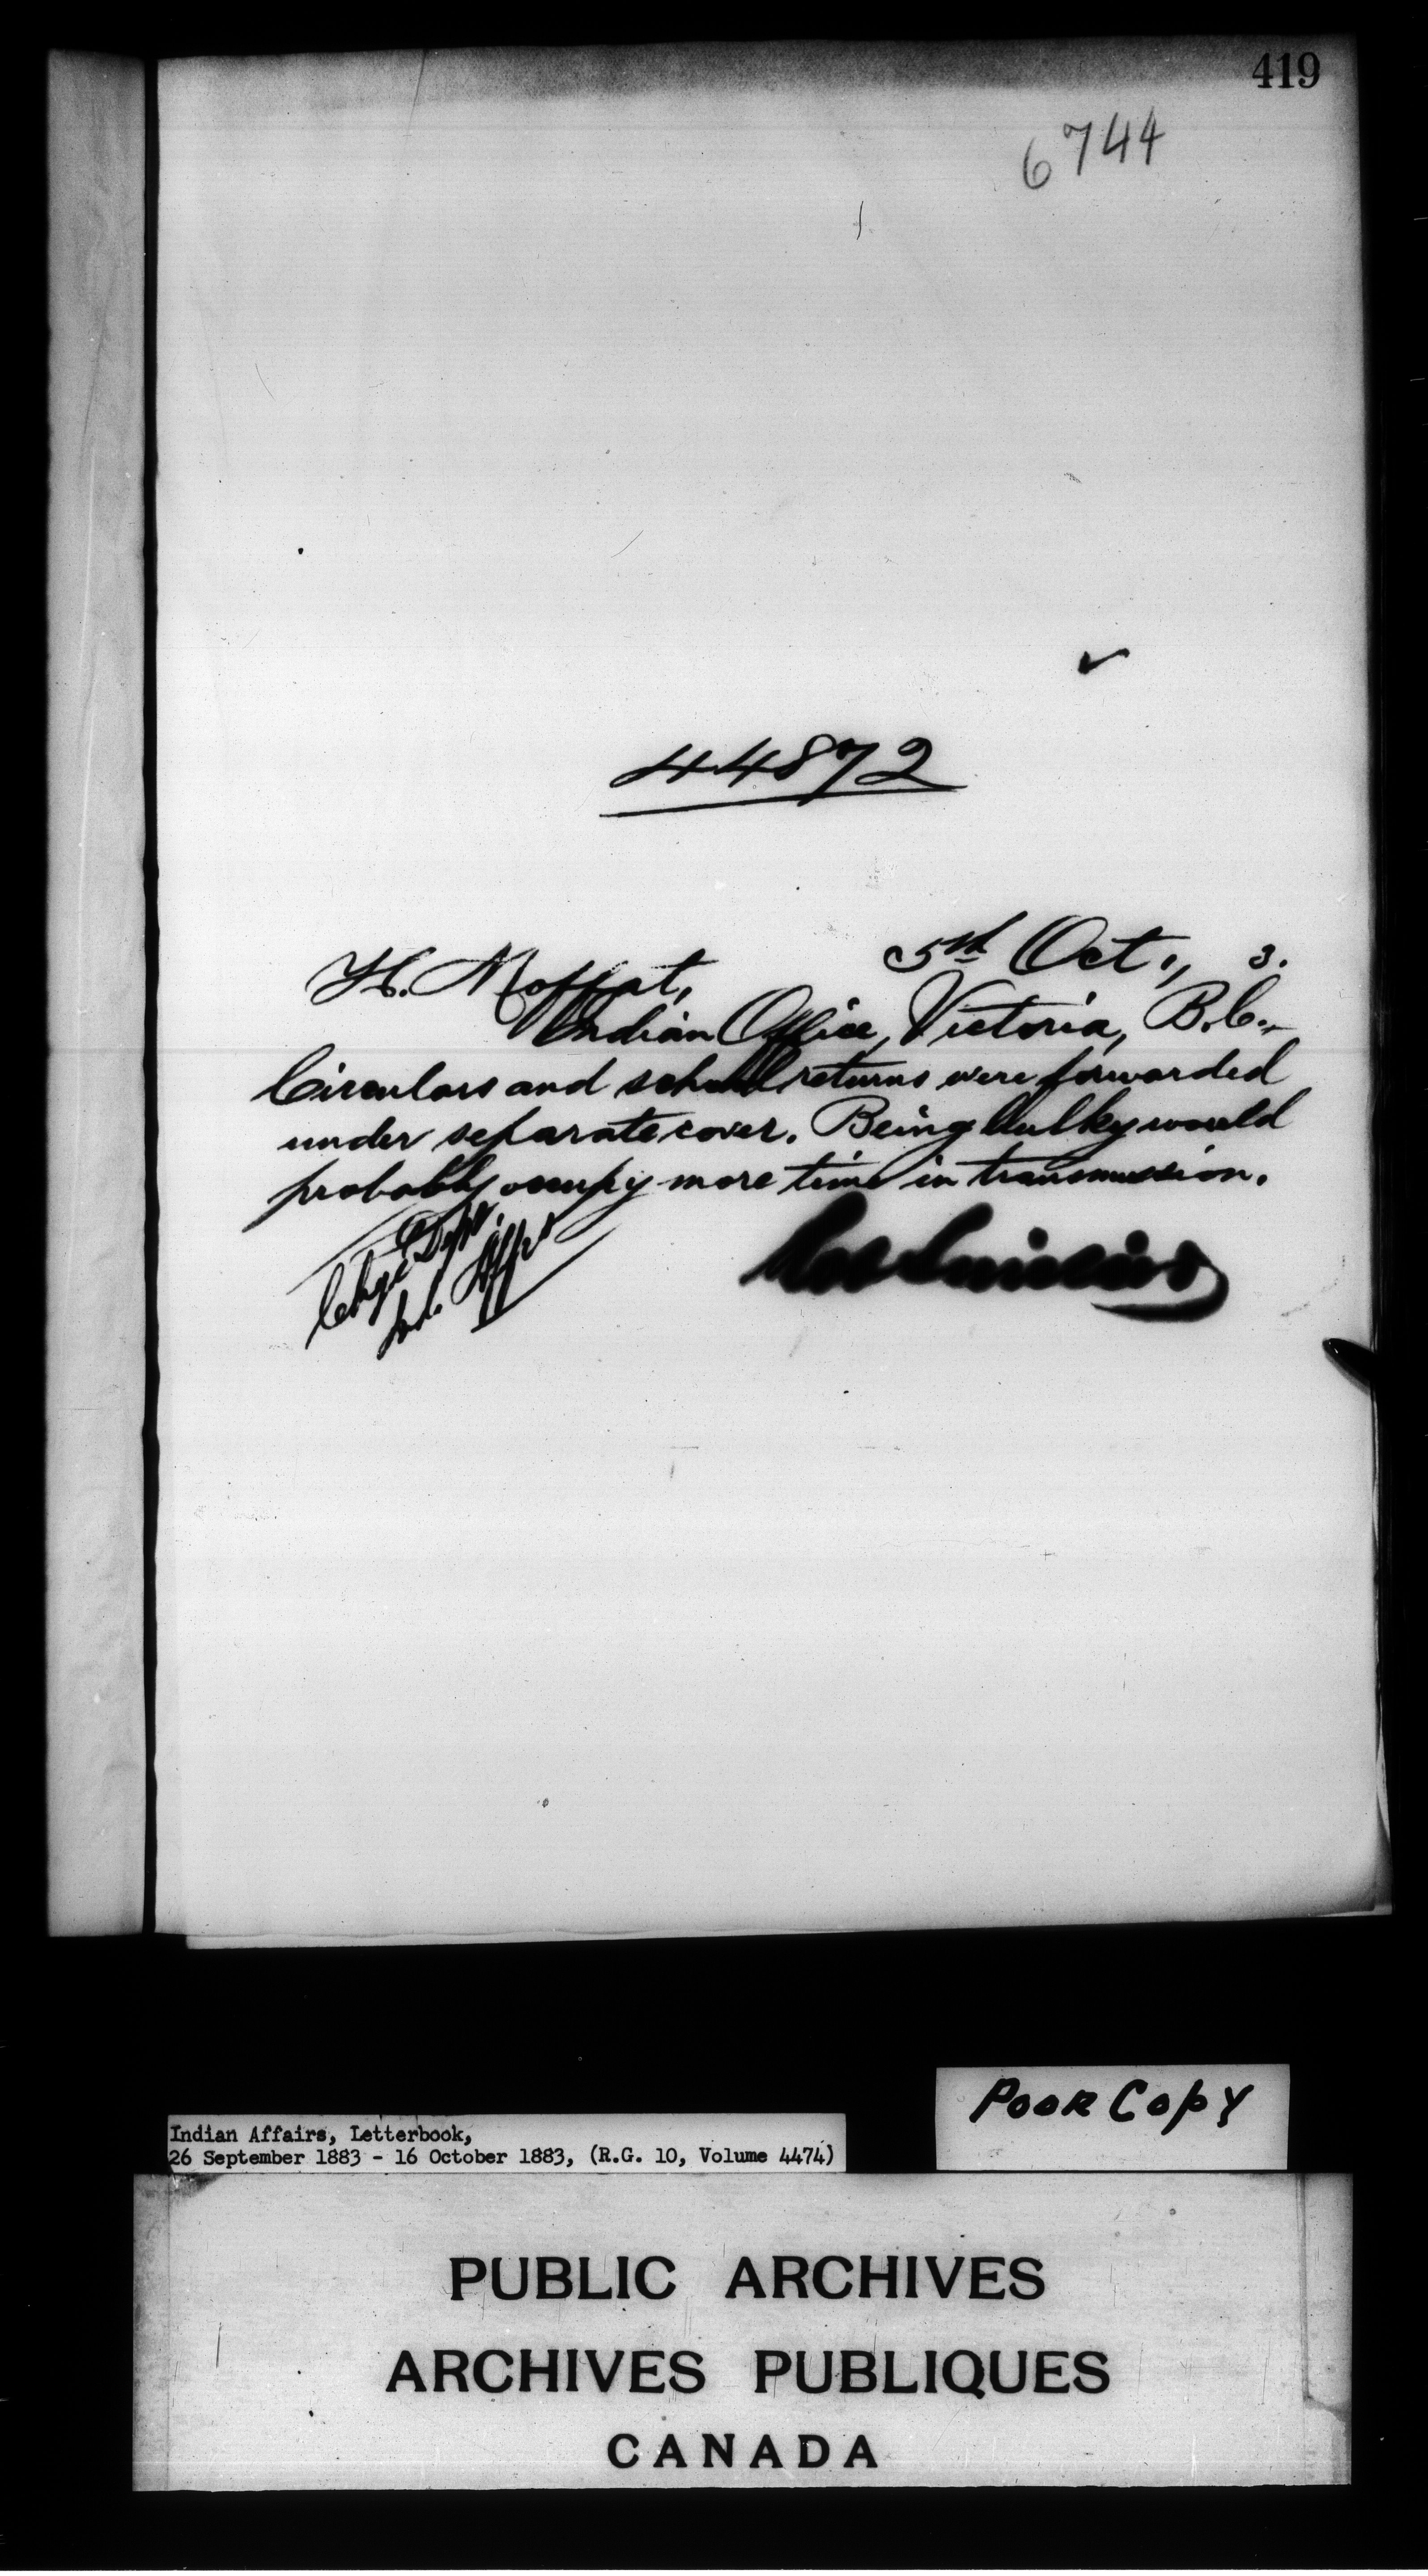 419
6744
44872
5th Oct., 3.
H. Moffat,
Indian Office, Victoria, B.C.,
Circulars and school returns were forwarded
under separate cover. Being bulky would
probably occupy more time in transmission.
Chge Dept.
Ind. Affrs
Poor Copy
Indian Affairs, Letterbook,
26 September 1883 - 16 October 1883, (R.G. 10, Volume 4474)
PUBLIC ARCHIVES
ARCHIVES PUBLIQUES
CANADA